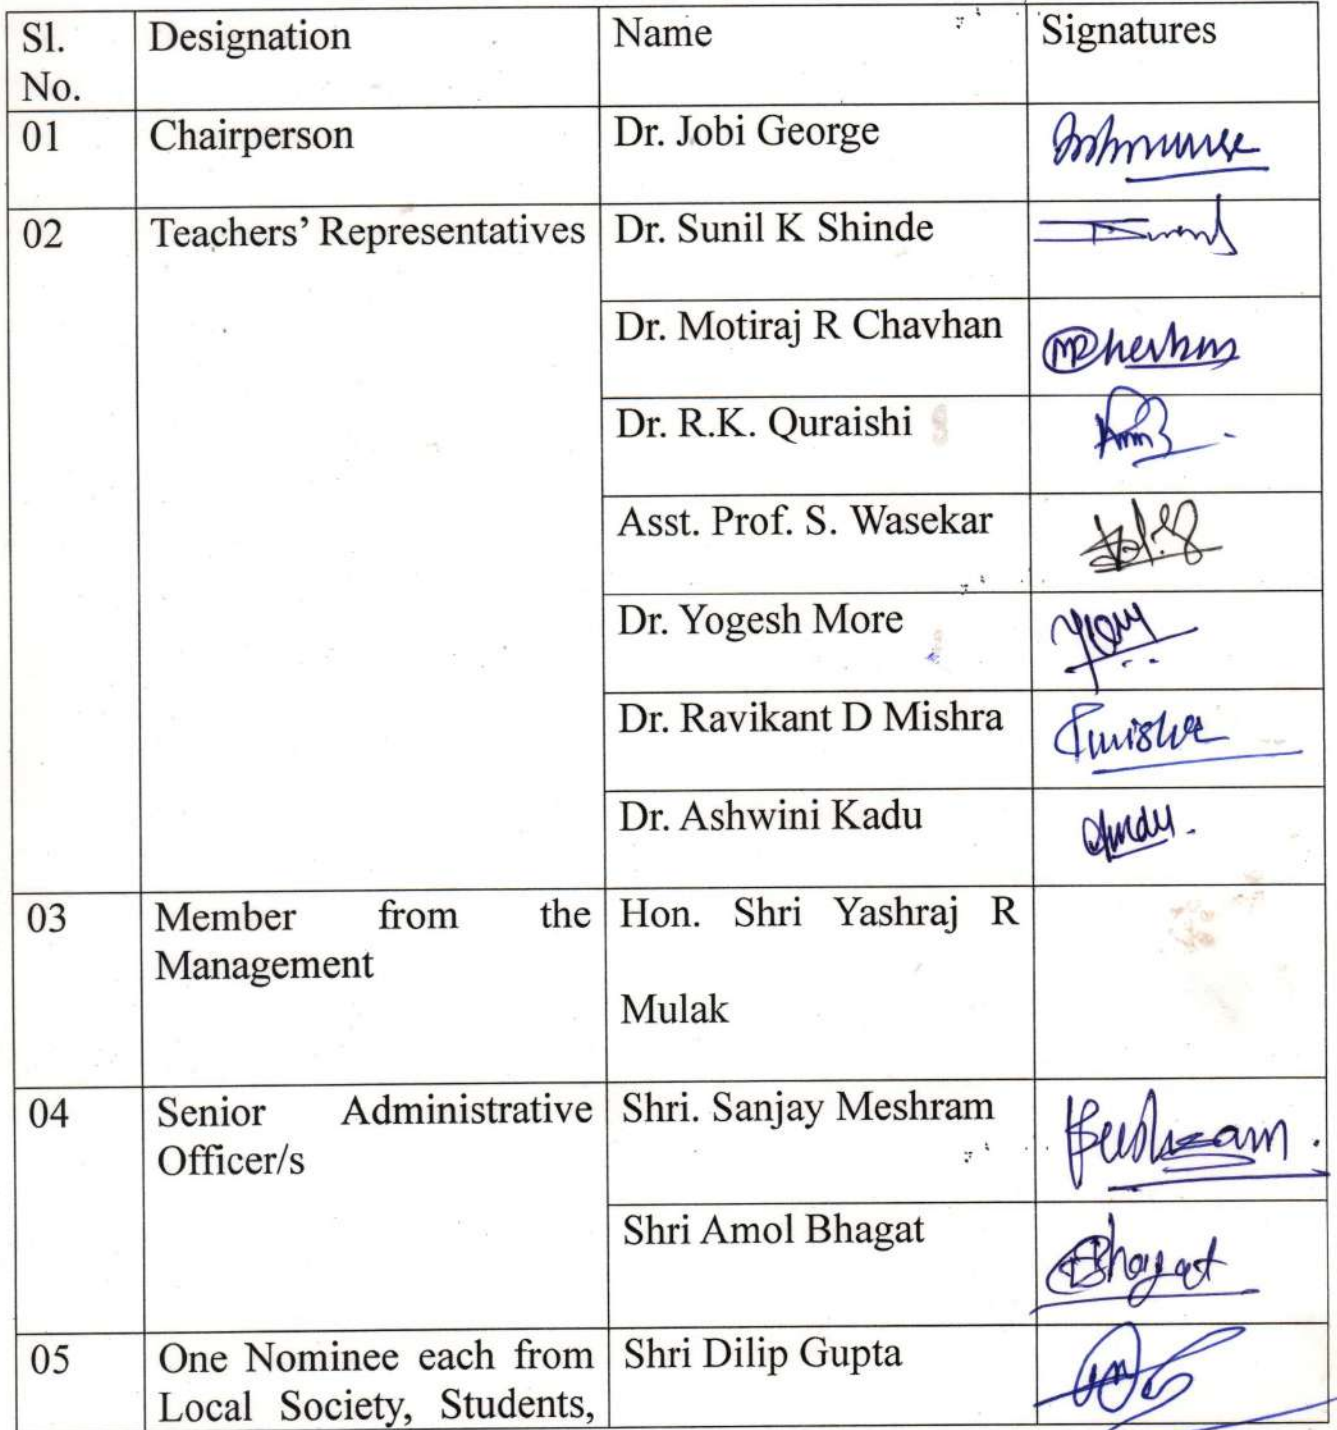 Sl. No. Designation Name Signatures
01 Chairperson Dr. Jobi George
02 Teachers' Representatives Dr. Sunil K Shinde
Dr. Motiraj R Chavhan
Dr. R.K. Quraishi
Asst. Prof. S. Wasekar
Dr. Yogesh More
Dr. Ravikant D Mishra
Dr. Ashwini Kadu
03 Member from the Hon. Shri Yashraj R
Management
Mulak
04 Senior Administrative Shri. Sanjay Meshram
Officer/s
Shri Amol Bhagat
Bhagat
05 One Nominee each from Shri Dilip Gupta
Local Society, Students,